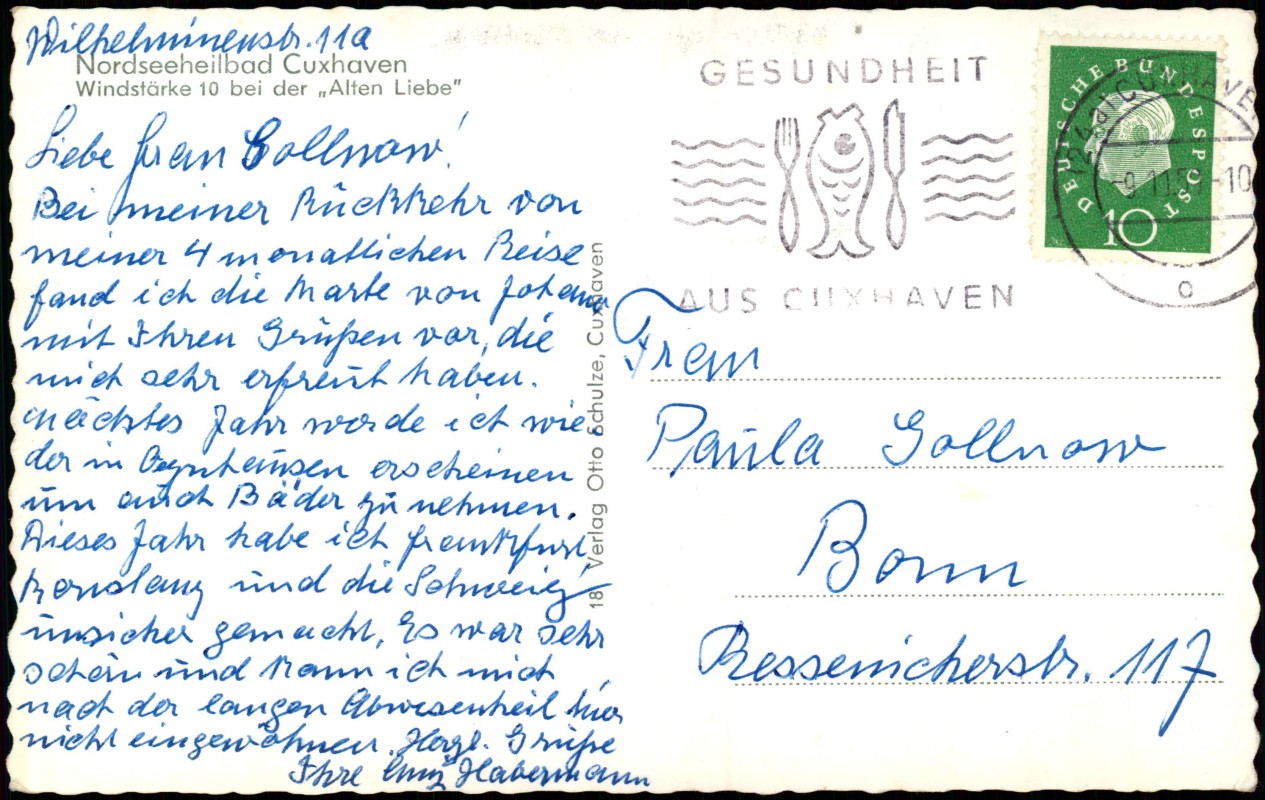 Wilhelminenstr. 11a
Nordseeheilbad Cuxhaven
Windstärke 10 bei der „Alten Liebe"
Liebe Frau Gollnow!
Bei meiner Rückkehr von
meiner 4 monatlichen Reise
fand ich die Karte von Johann
mit Ihren Grüßen vor, die
mich sehr erfreut haben.
Nächstes Jahr werde ich wie
der in Oeynhausen erscheinen
um auch Bäder zu nehmen.
Dieses Jahr habe ich Frankfurt,
Konstanz und die Schweiz
unsicher gemacht. Es war sehr
schön und kann ich mich
nach der langen Abwesenheit hier
nicht eingewöhnen. Herzl. Grüße
Ihre Habermann
18 Verlag Otto Schulze, Cuxhaven
GESUNDHEIT
AUS CUXHAVEN
DEUTSCHE BUNDESPOST
10
CUXHAVEN
-10
Frau
Paula Gollnow
Bonn
Ressenicherstr. 117